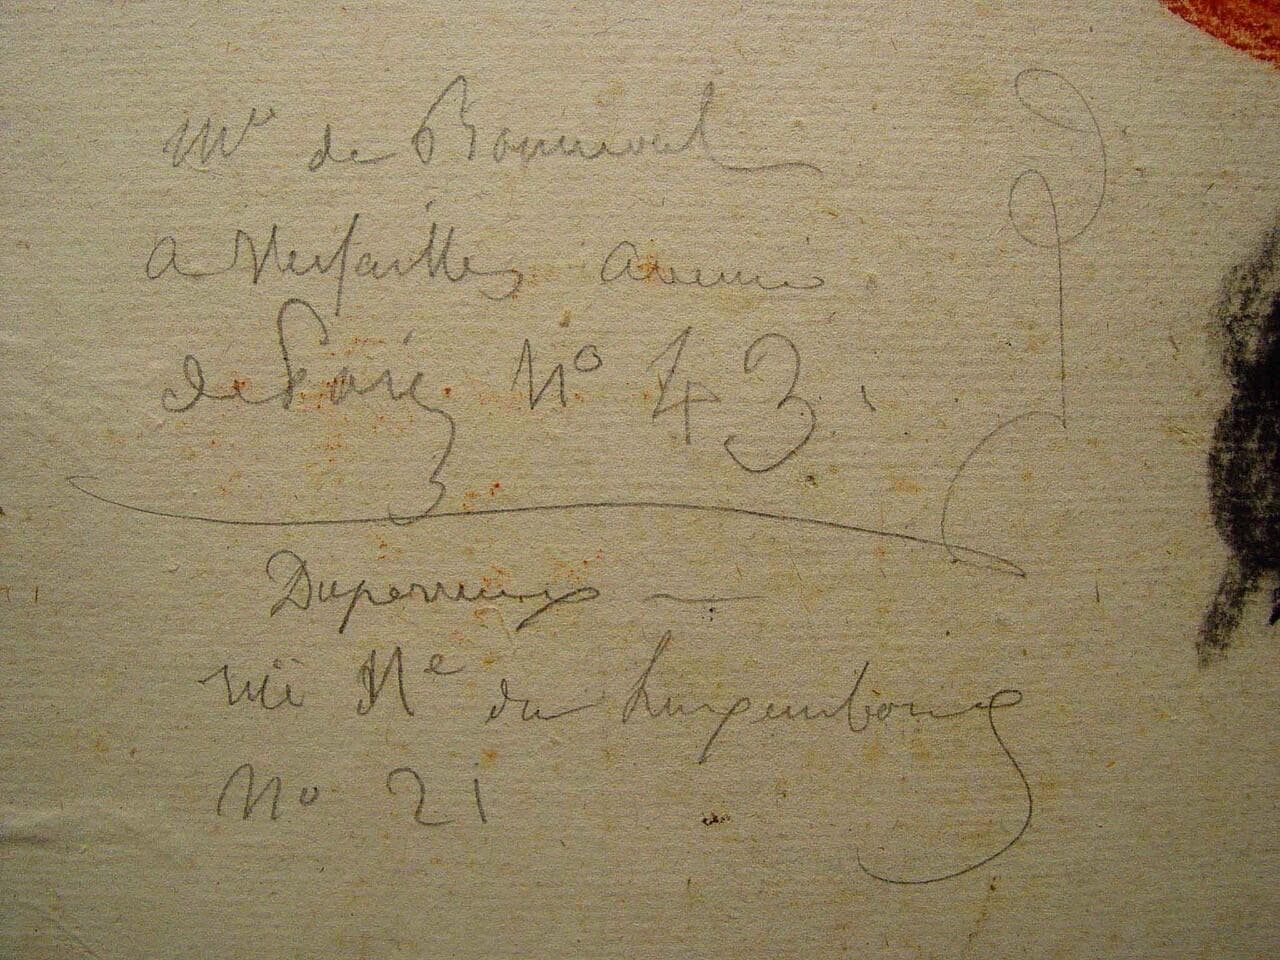 Mr de Bonneval
a Versailles avenüe
de Paris N° 43.
Duperreux
rüe Ne du Luxembourg
No 21